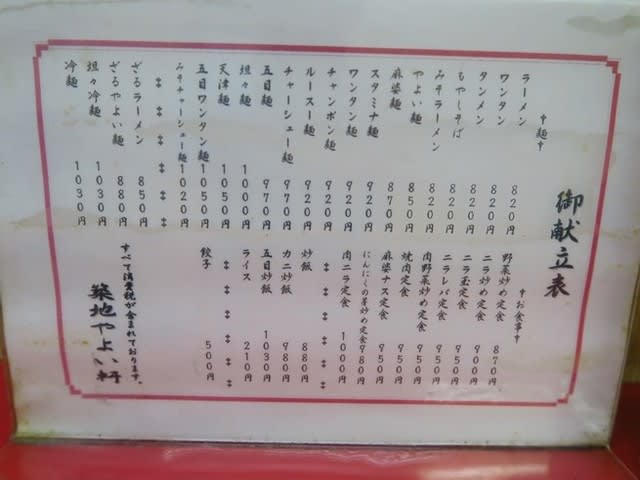 御献立表
麺
ラーメン 820円
ワンタン 820円
タンメン 820円
もやしそば 820円
みそラーメン 820円
やよい麺 850円
麻婆麺 870円
スタミナ麺 920円
ワンタン麺 920円
チャンポン麺 920円
ルースー麺 920円
チャーシュー麺 970円
五目麺 970円
坦々麺 1000円
天津麺 1050円
五目ワンタン麺 1050円
みそチャーシュー麺 1020円
ざるラーメン 850円
ざるやよい麺 880円
坦々冷麺 1030円
冷麺 1030円
お食事
野菜炒め定食 870円
ニラ炒め定食 900円
ニラ玉定食 900円
ニラレバ定食 950円
肉野菜炒め定食 950円
焼肉定食 950円
麻婆ナス定食 950円
にんにくの芽炒め定食 980円
肉ニラ定食 1000円
炒飯 880円
カニ炒飯 980円
五目炒飯 1030円
ライス 210円
餃子 500円
すべて消費税が含まれております。
築地やよい軒